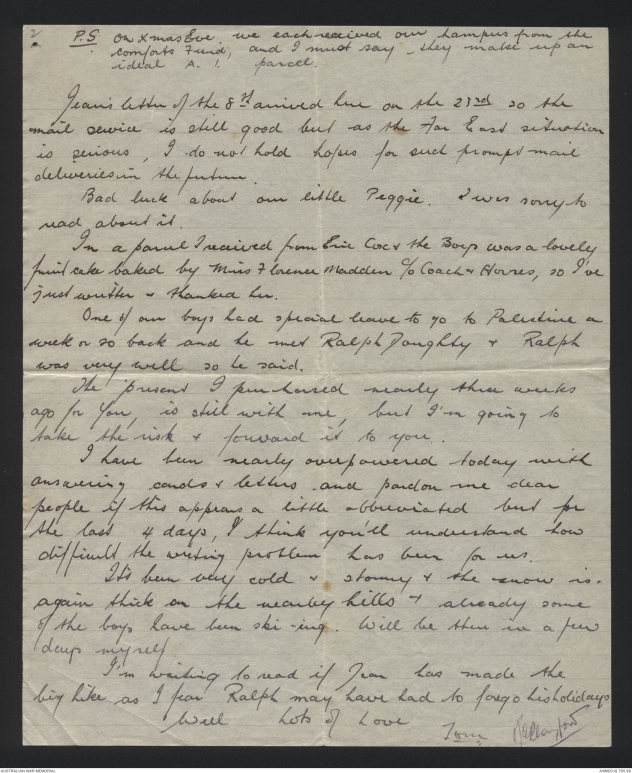 2
P.S on Xmas Eve, we each received our hampers from the
comforts Fund, and I must say, they make up an
ideal A.1. parcel.
Jean's letter of the 8th arrived here on the 23rd so the
mail service is still good but as the Far East situation
is serious, I do not hold hopes for such prompt mail
deliveries in the future.
Bad luck about our little Peggie. I was sorry to
read about it.
In a parcel I received from Eric Cox & the Boys was a lovely
fruit cake baked by Miss Florence Madden c/o Coach & Horses, so I've
just written & thanked her.
One of our boys had special leave to go to Palestine a
week or so back and he met Ralph Doughty & Ralph
was very well so he said.
The present I purchased nearly three weeks
ago for you, is still with me, but I'm going to
take the risk & forward it to you.
I have been nearly overpowered today with
answering cards & letters and pardon me dear
people if this appears a little abbreviated but for
the last 4 days, I think you'll understand how
difficult the writing problem has been for us.
It's been very cold & stormy & the snow is
again thick on the nearby hills & already some
of the boys have been ski-ing. Will be there in a few
days myself
I'm waiting to read if Jean has made the
big hike as I fear Ralph may have had to forgo his holidays
Well Lots of Love
Tom.
AUSTRALIAN WAR MEMORIAL